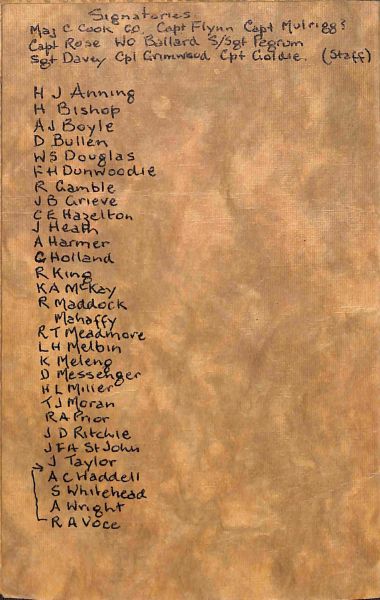 Signatories.
Maj C. Cook CO. Capt Flynn Capt Mulrigg?
Capt Rose WO Ballard S/Sgt Pegrum
Sgt Davey Cpl Grimwood Cpt Goldie. (Staff)
H J Anning
H Bishop
A J Boyle
D Bullen
W S Douglas
F H Dunwoodie
R Gamble
J B Grieve
C E Hazelton
J Heath
A Harmer
G Holland
R King
K A McKay
R Maddock
Mahaffy
R T Meadmore
L H Melbin
K Meleng
D Messenger
H L Miller
T J Moran
R A Prior
J D Ritchie
J F A St John
J Taylor
A C Haddell
S Whitehead
A Wright
R A Voce